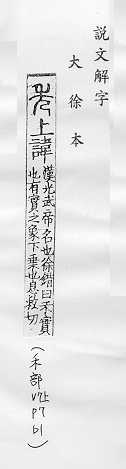 說文解字
大徐本
秀上諱
漢光武帝名也徐鍇曰禾實
也有實之象下垂也息救切
(禾部 V7上 P7 b1)